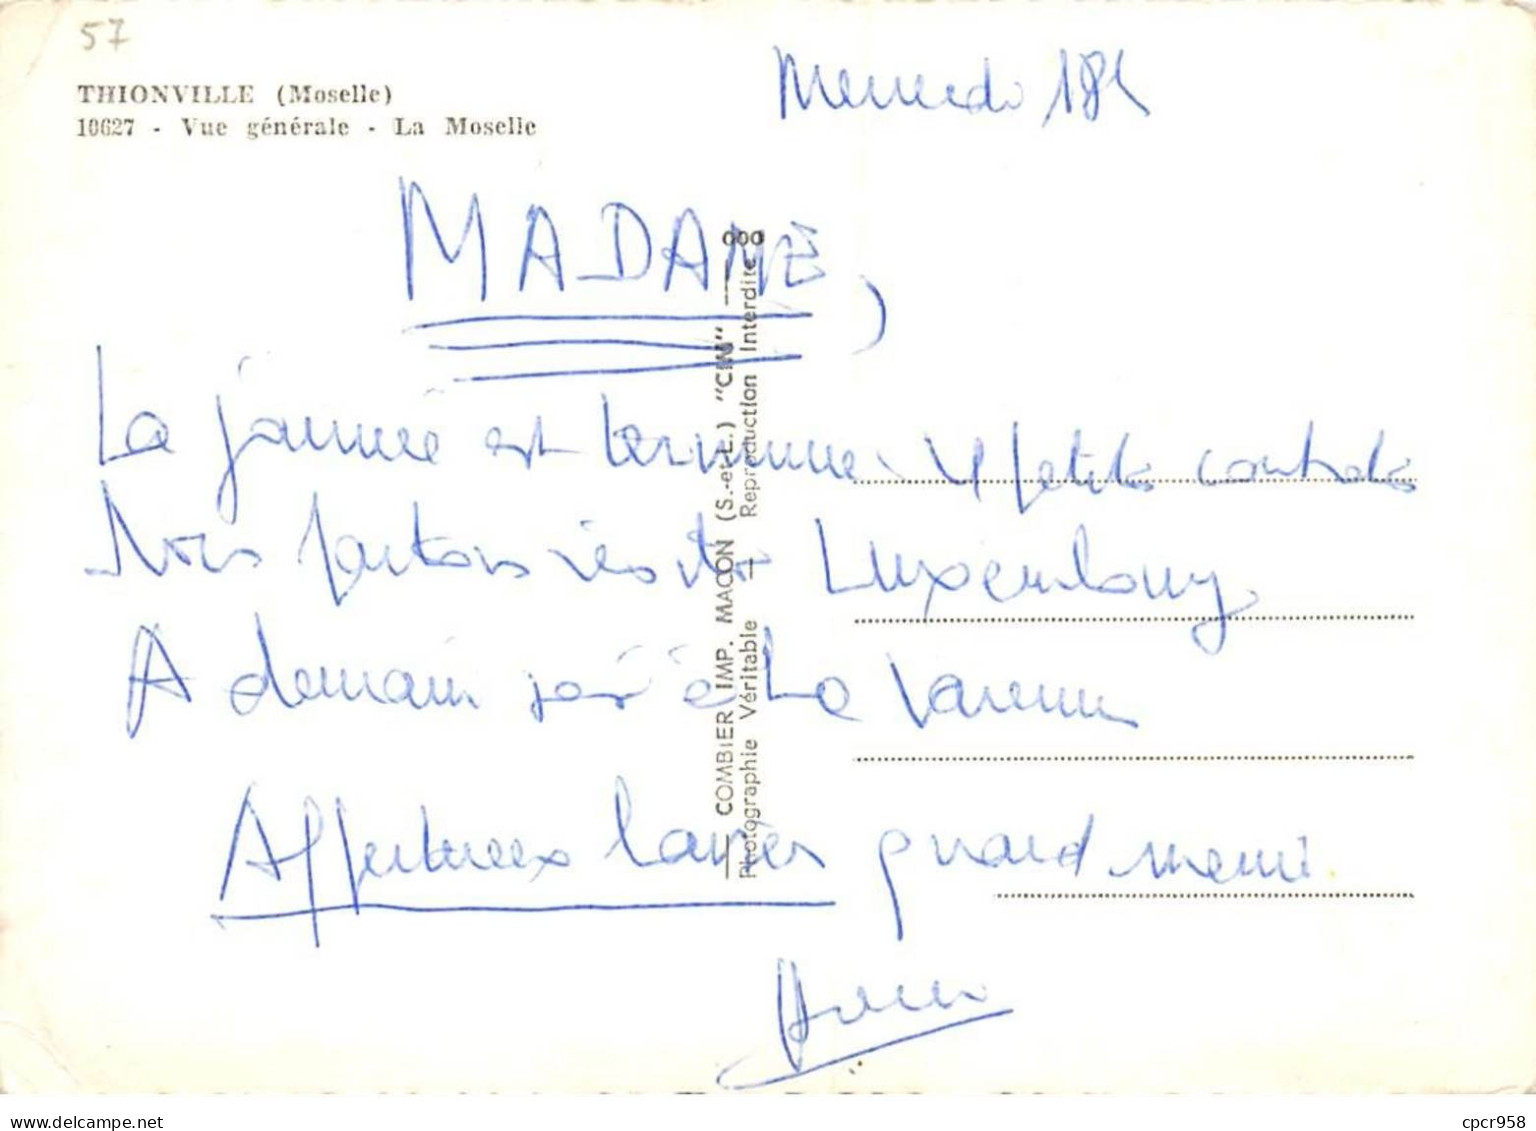 57
THIONVILLE (Moselle)
10627 - Vue générale - La Moselle
Mercredi 18h
MADAME,
La journée est terminée. 4 petits contrats
Nous partons visiter Luxembourg
A demain soir à La Varenne
Affectueux baiser grand merci
COMBIER IMP. MACON (S.-et-L.) "CIM"
Photographie Véritable — Reproduction Interdite
cpcr958